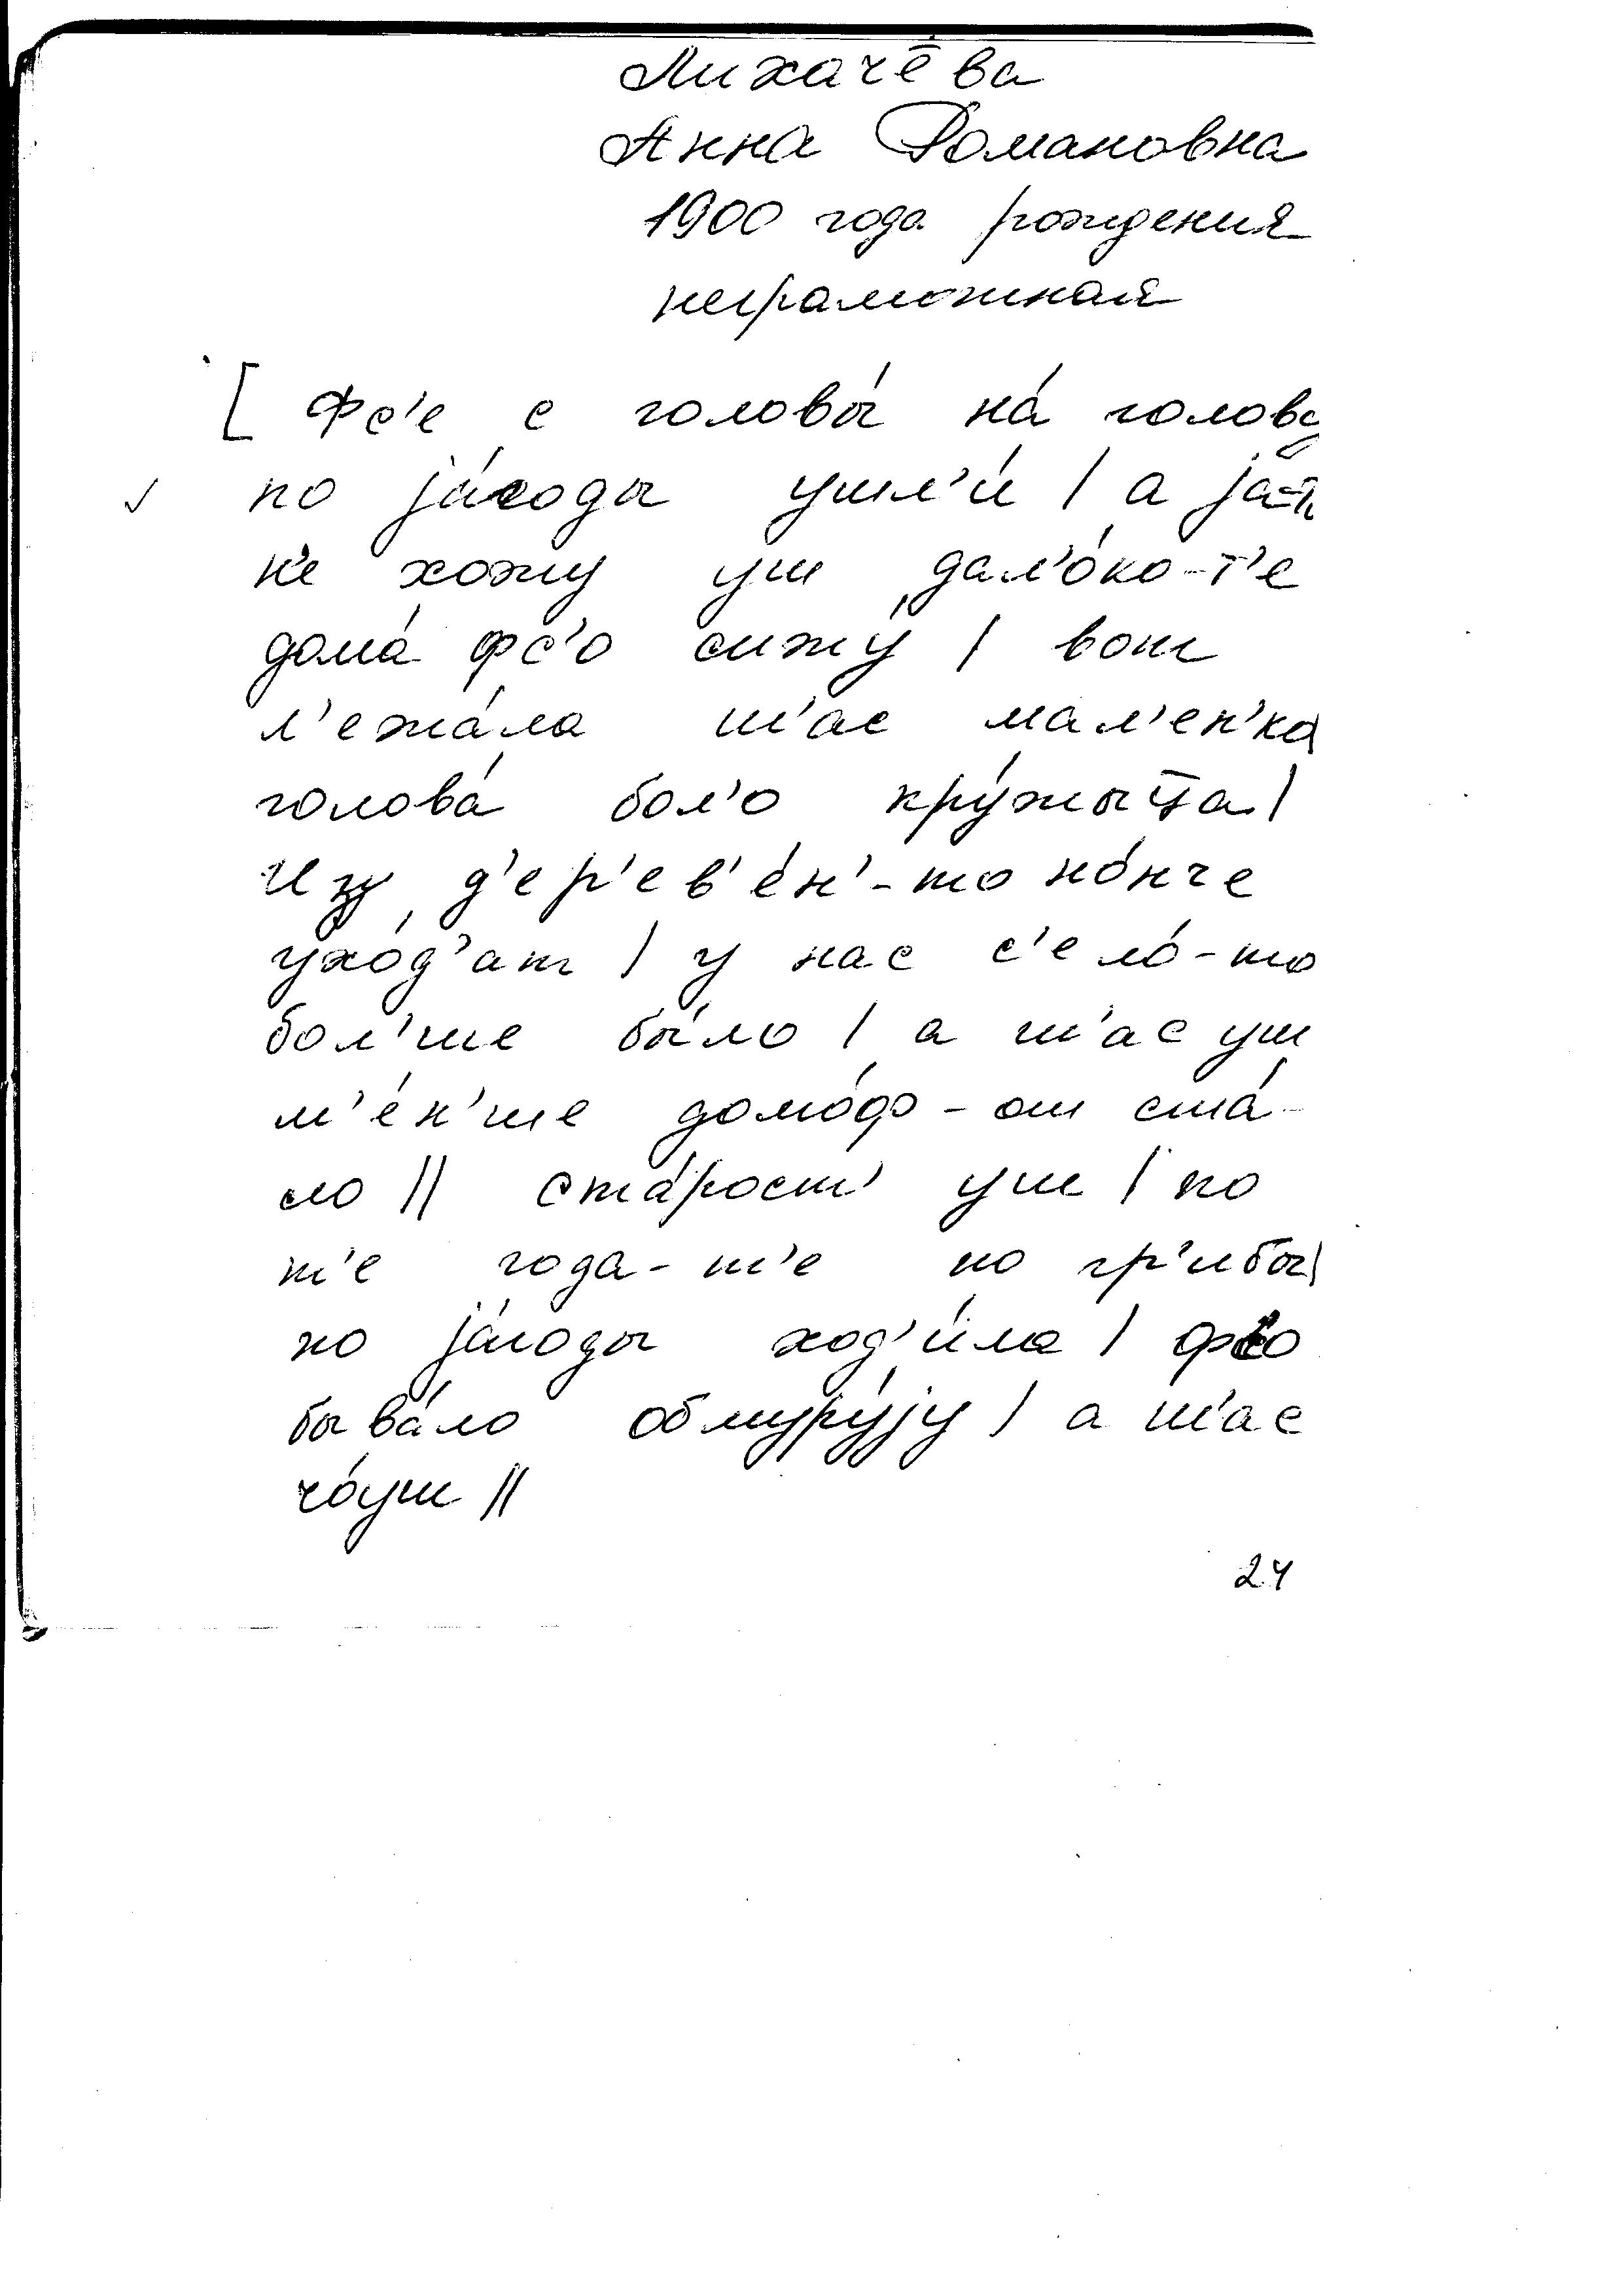 Лихачёва
Анна Романовна
1900 года рождения
неграмотная
[ Фс'е с головы́ на́ голову
по jа́годы ушл'и́ | а jа-т
н'е хожу уш дал'о́ко-т'е
дома́ фс'о сижу́ | вот
л'ежа́ла т'ас мал'ен'ко
голова́ бол'о кру́жыца |
Из д'ер'ев'е́н'-то но́нче
ухо́д'ат | у нас с'ело́-то
бол'ше бы́ло | а т'ас уш
м'е́н'ше домо́ф-от ста́-
ло || ста́рост' уш | по
т'е года-т'е по гр'ибы |
по jа́годы ход'и́ла | фс'о
быва́ло обмуру́jу | а т'ас
чо́уш ||
24